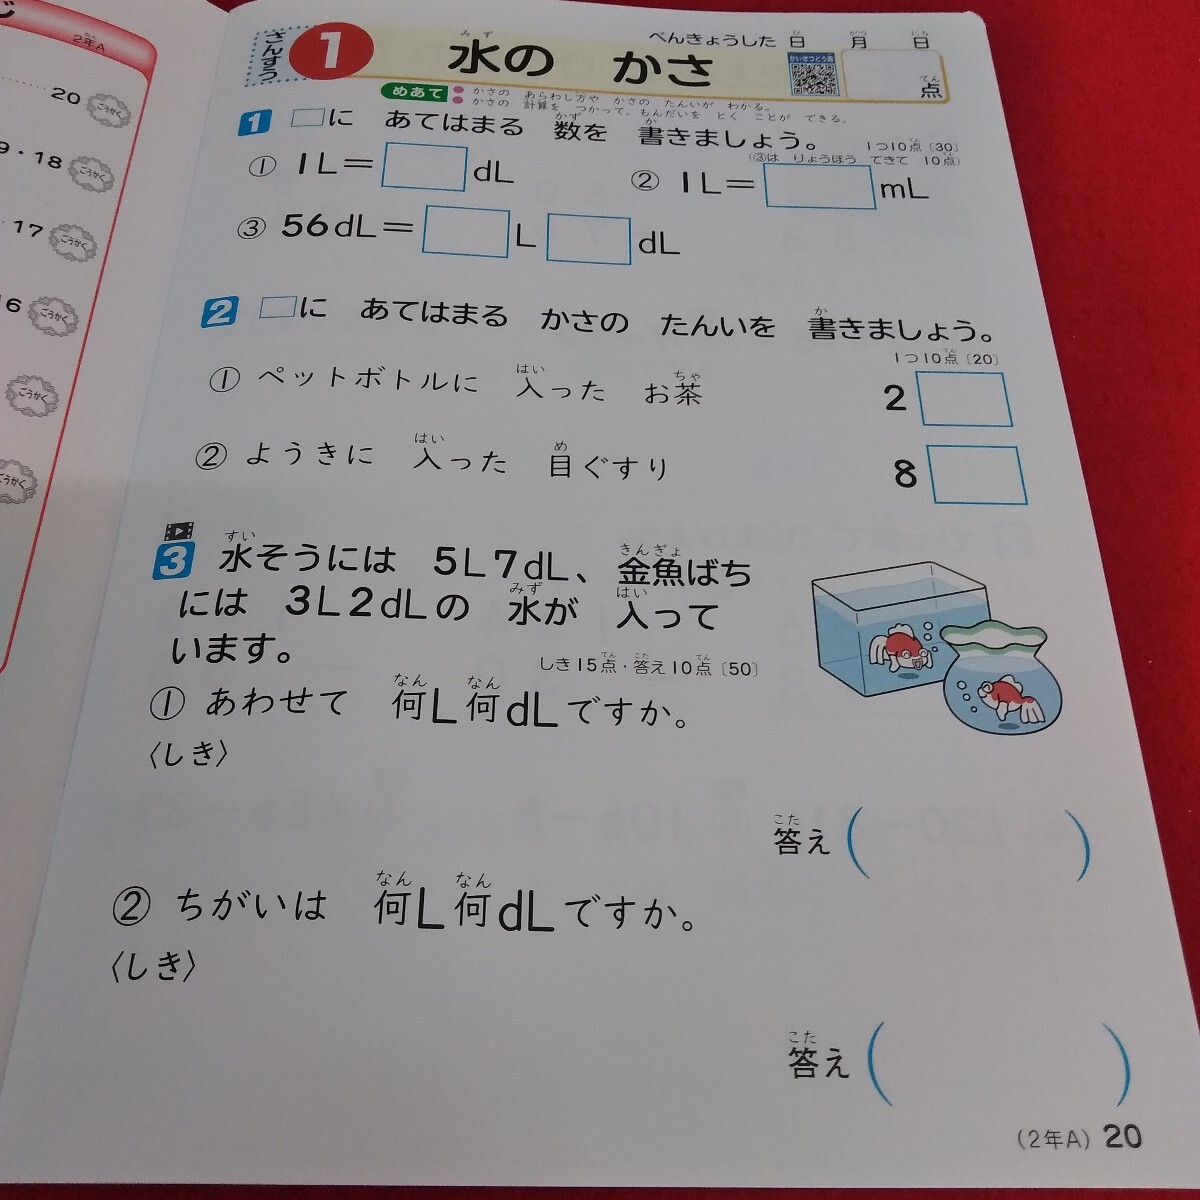 じ
2年A
20 ごうかく
9・18 ごうかく
17 ごうかく
6 ごうかく
ごうかく
ごうかく
さんすう
1 水の かさ
べんきょうした日 月 日
かいせつどう画
点
めあて
かさの あらわし方や かさの たんいが わかる。
かさの 計算を つかって、もんだいを とく ことが できる。
1 □に あてはまる 数を 書きましょう。 1つ10点〔30〕
(③は りょうほう できて 10点)
① 1L=□dL ② 1L=□mL
③ 56dL=□L□dL
2 □に あてはまる かさの たんいを 書きましょう。
1つ10点〔20〕
① ペットボトルに 入った お茶 2□
② ようきに 入った 目ぐすり 8□
3 水そうには 5L7dL、金魚ばち
には 3L2dLの 水が 入って
います。
しき15点・答え10点〔50〕
① あわせて 何L何dLですか。
〈しき〉
答え( )
② ちがいは 何L何dLですか。
〈しき〉
答え( )
(2年A) 20